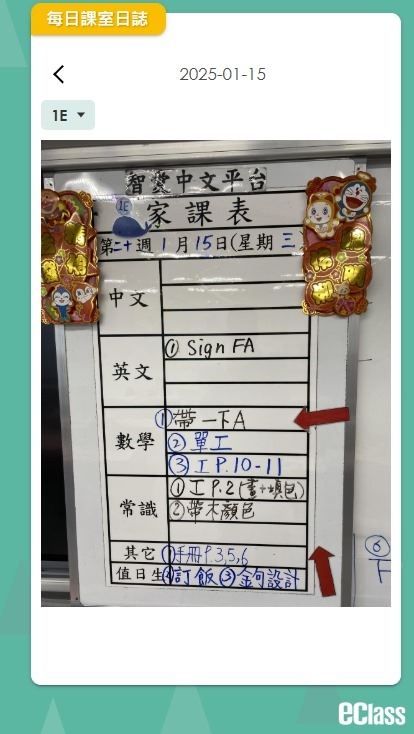 每日課室日誌
2025-01-15
1E
智愛中文平台
1E
家課表
第二十週 1 月 15 日(星期 三)
中文
英文
① Sign FA
數學
① 帶一下A
② 單工
③ 工 P.10-11
常識
① 工 P.2 (畫+填色)
② 帶木顏色
其它
① 手冊 P.3,5,6
值日生
② 訂飯 ③ 金句設計
⑥
下
eClass